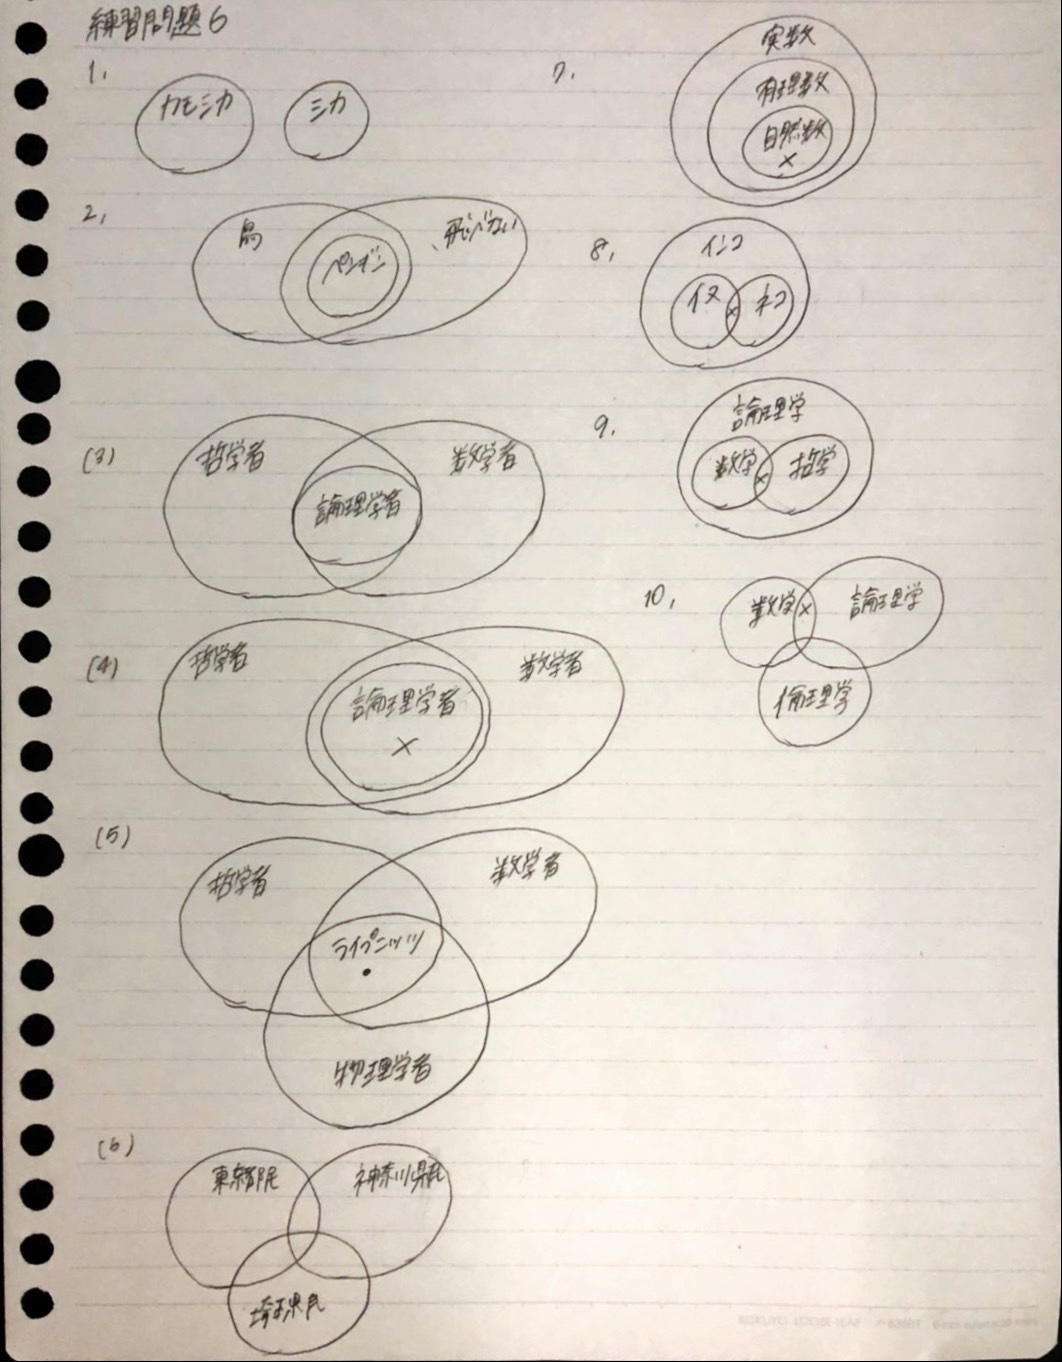 練習問題6
1.
カモシカ
シカ
2.
鳥
飛べない
ペンギン
(3)
哲学者
数学者
論理学者
(4)
哲学者
数学者
論理学者
×
(5)
哲学者
数学者
ライプニッツ
物理学者
(6)
東京都民
神奈川県民
埼玉県民
7.
実数
有理数
自然数
×
8.
インコ
イヌ
×
ネコ
9.
論理学
数学
×
哲学
10.
数学
×
論理学
倫理学